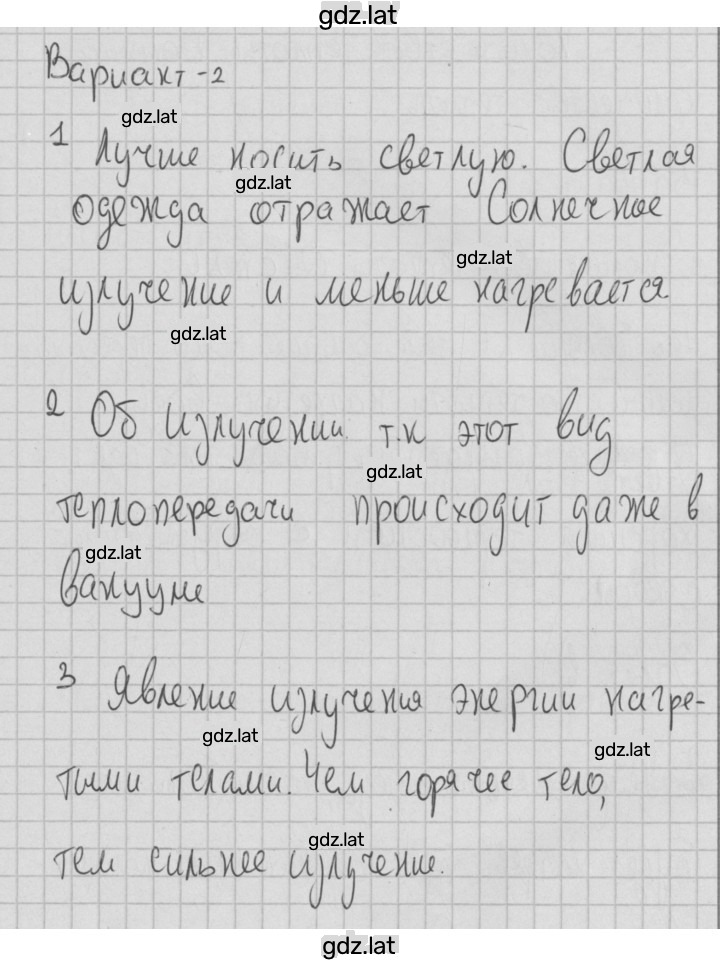 gdz.lat
Вариант-2
gdz.lat
1 Лучше носить светлую. Светлая
gdz.lat
одежда отражает Солнечное
gdz.lat
излучение и меньше нагревается
gdz.lat
2 Об излучении. т.к этот вид
gdz.lat
теплопередачи происходит даже в
gdz.lat
вакууме
3 Явление излучения энергии нагре-
gdz.lat
gdz.lat
тыми телами. Чем горячее тело,
gdz.lat
тем сильнее излучение.
gdz.lat